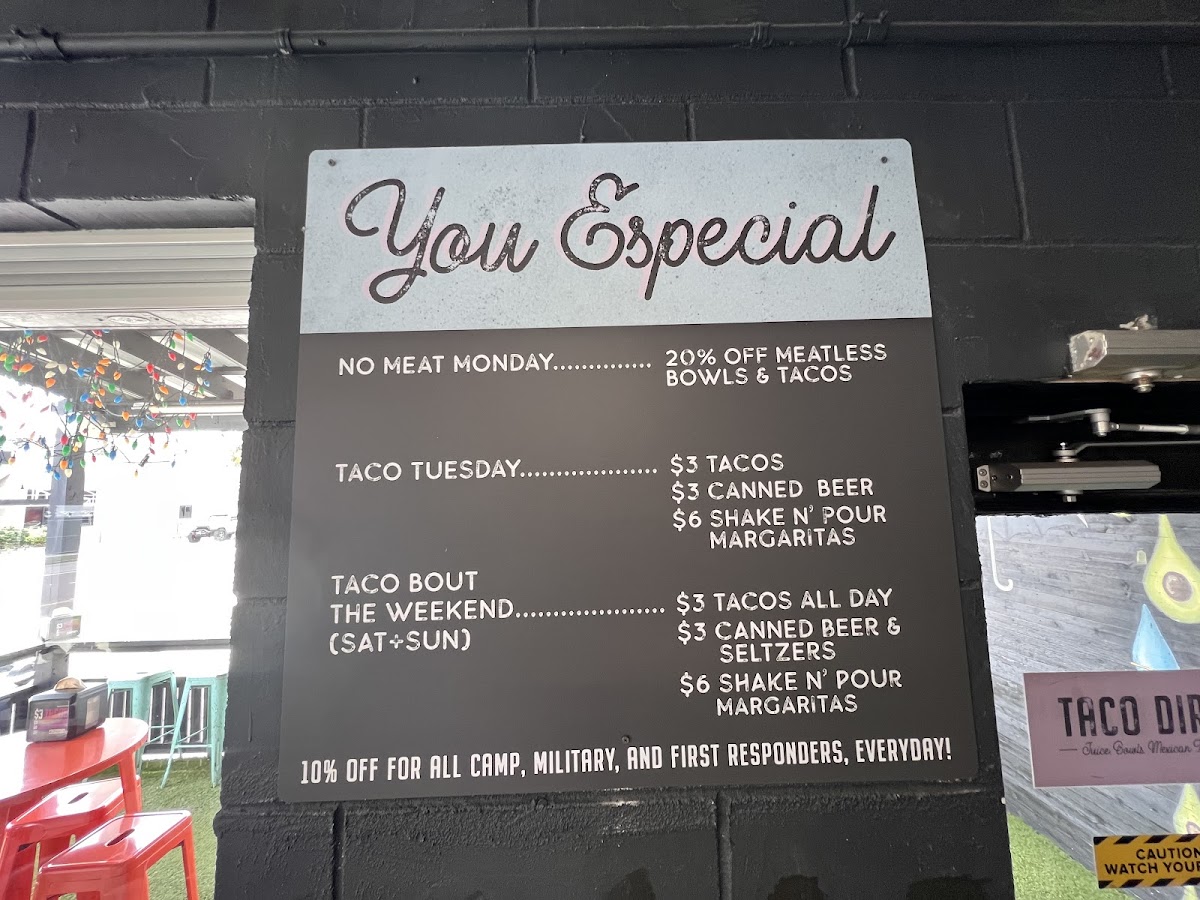 You Especial
NO MEAT MONDAY.............. 20% OFF MEATLESS
BOWLS & TACOS
TACO TUESDAY................... $3 TACOS
$3 CANNED BEER
$6 SHAKE N' POUR
MARGARITAS
TACO BOUT
THE WEEKEND..................... $3 TACOS ALL DAY
(SAT+SUN)
$3 CANNED BEER &
SELTZERS
$6 SHAKE N' POUR
MARGARITAS
10% OFF FOR ALL CAMP, MILITARY, AND FIRST RESPONDERS, EVERYDAY!
TACO
Juice Bowls Mexican
CAUTION
WATCH YOUR
$3